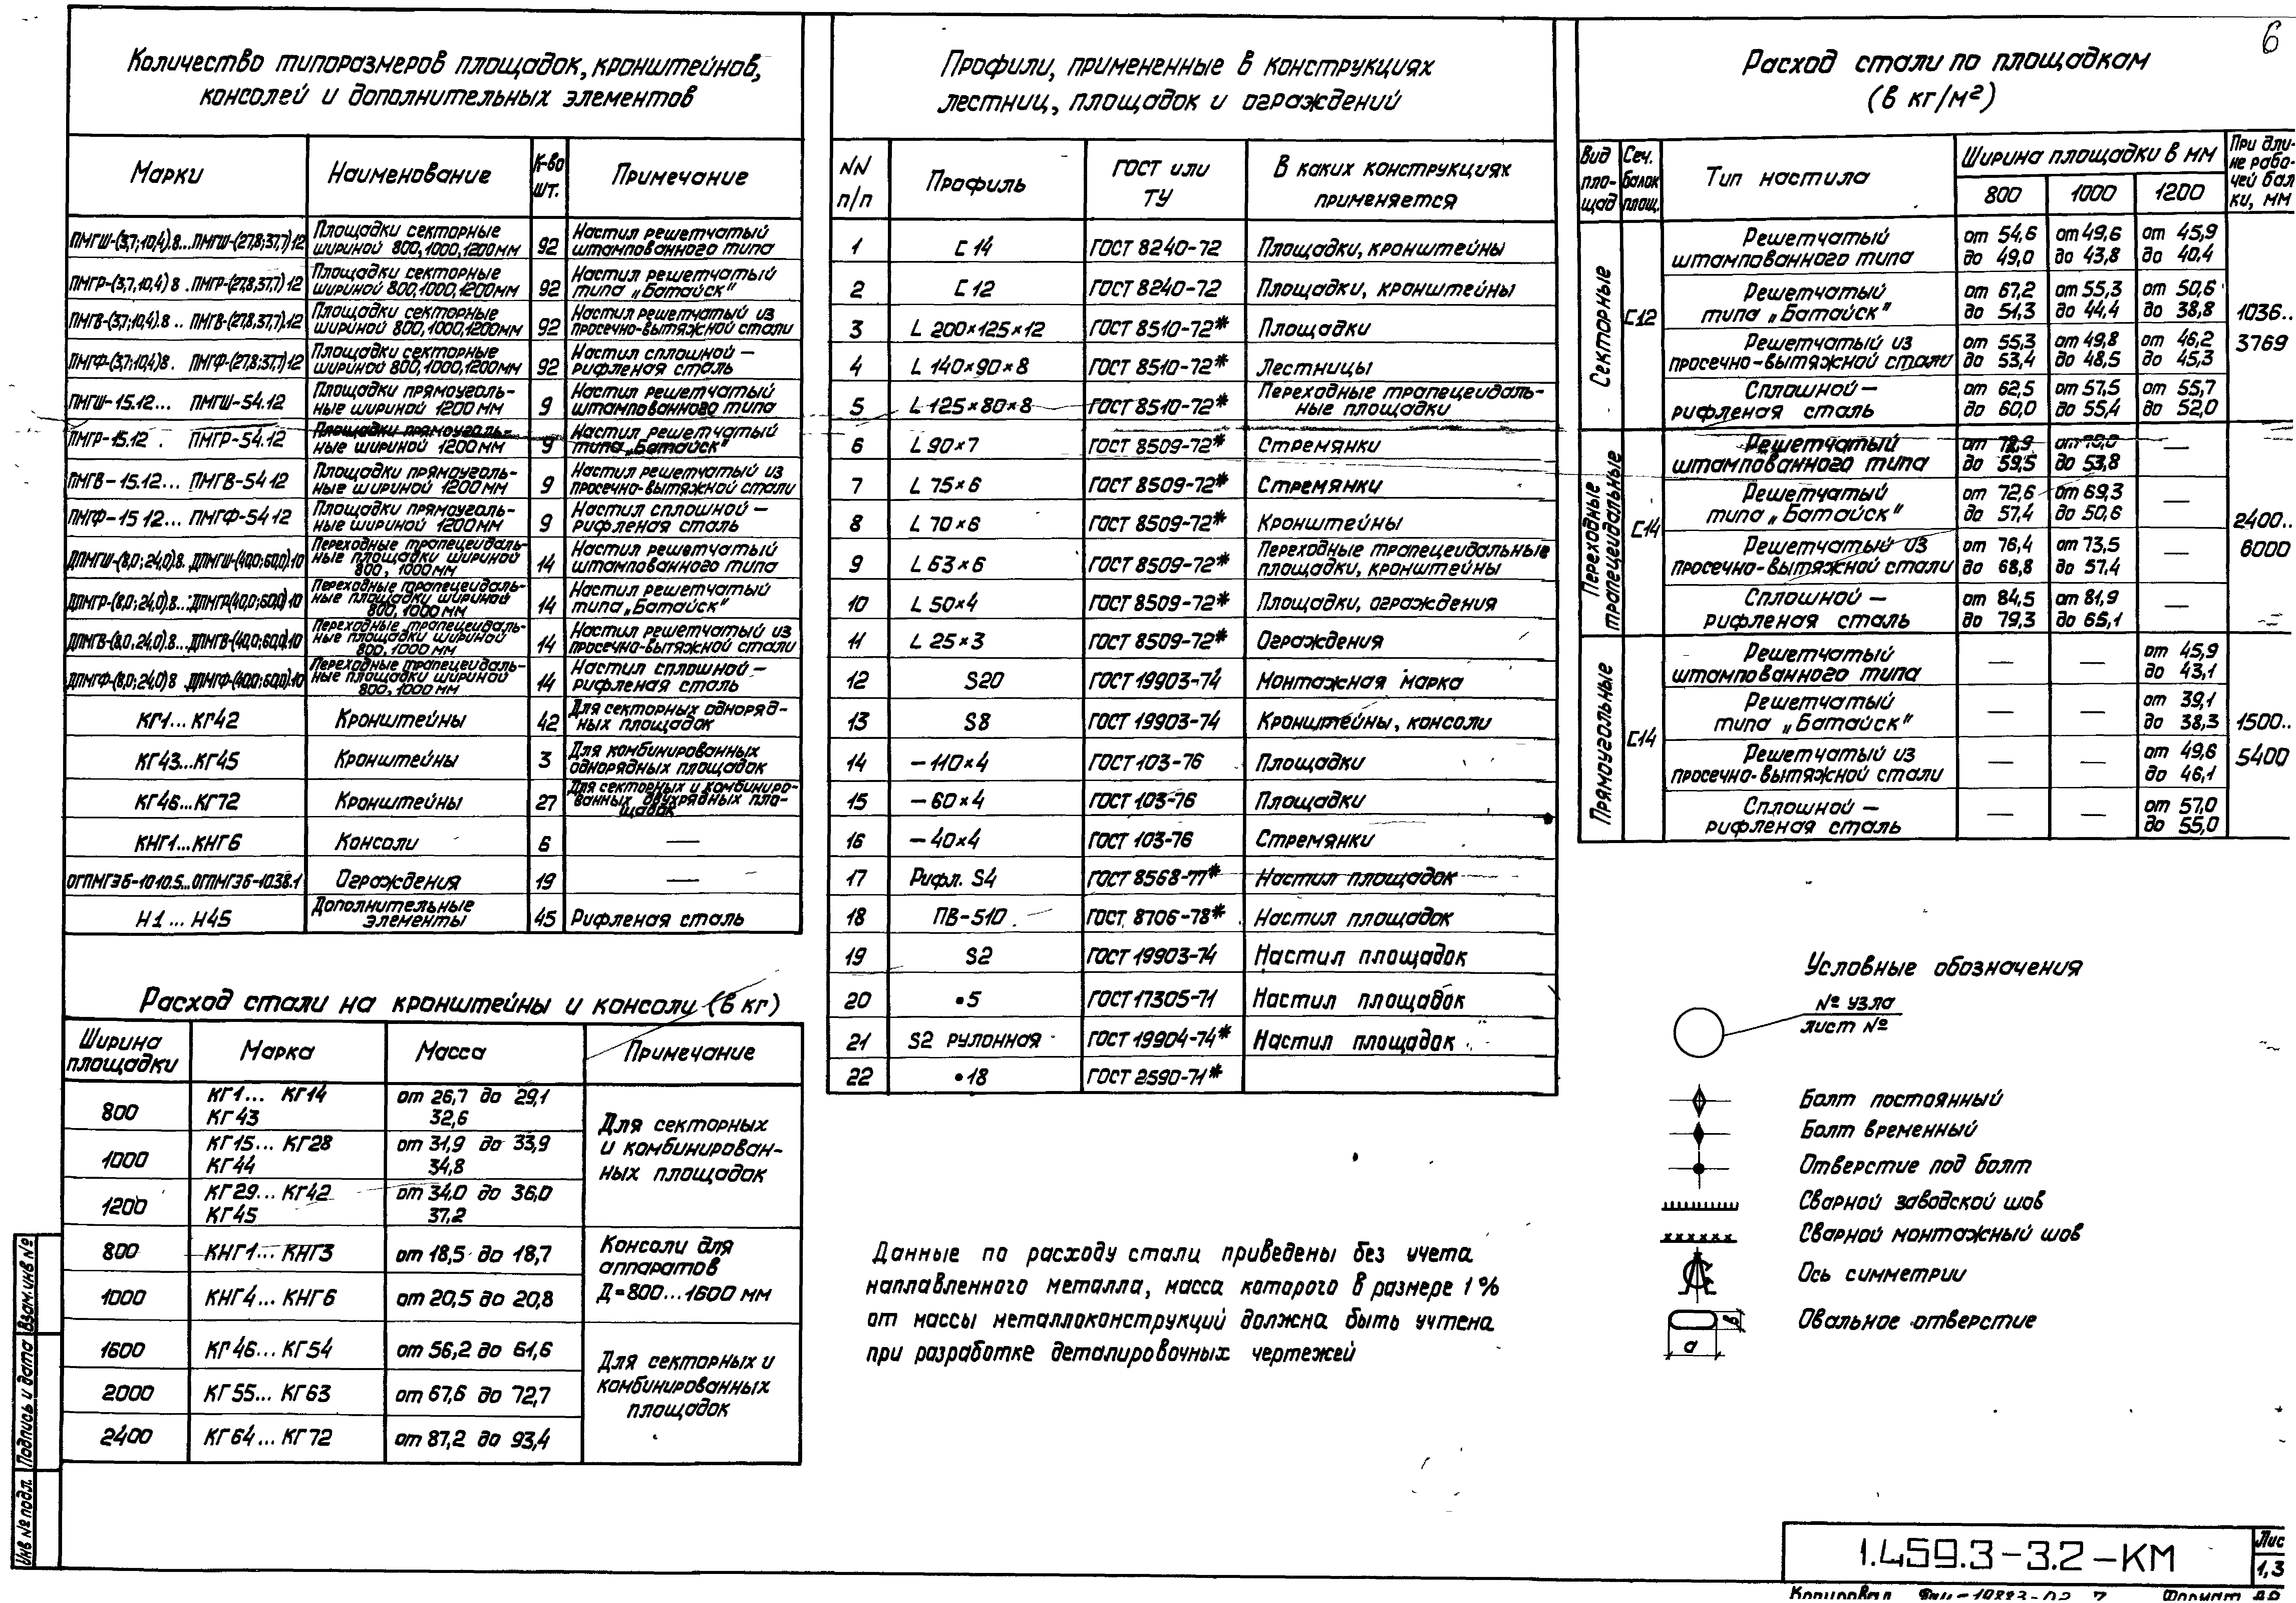 6
Количество типоразмеров площадок, кронштейнов,
консолей и дополнительных элементов
Марки Наименование К-во шт. Примечание
ПМГШ-(3,7;10,4).8...ПМГШ-(27,8;37,7)12 Площадки секторные шириной 800,1000,1200мм 92 Настил решетчатый штампованного типа
ПМГР-(3,7,10,4) 8 . ПМГР-(27,8,37,7) 12 Площадки секторные шириной 800,1000,1200мм 92 Настил решетчатый типа „Батайск"
ПМГВ-(3,7;10,4).8 .. ПМГВ-(27,8,37,7).12 Площадки секторные шириной 800,1000,1200мм 92 Настил решетчатый из просечно-вытяжной стали
ПМГФ-(3,7;10,4)8. ПМГФ-(27,8;37,7)12 Площадки секторные шириной 800,1000,1200мм 92 Настил сплошной — рифленая сталь
ПМГШ-15.12... ПМГШ-54.12 Площадки прямоуголь- ные шириной 1200 мм 9 Настил решетчатый штампованного типа
ПМГР-15.12 . ПМГР-54.12 Площадки прямоуголь- ные шириной 1200мм 9 Настил решетчатый типа „Батайск"
ПМГВ-15.12... ПМГВ-54 12 Площадки прямоуголь- ные шириной 1200мм 9 Настил решетчатый из просечно-вытяжной стали
ПМГФ-15 12... ПМГФ-54 12 Площадки прямоуголь- ные шириной 1200мм 9 Настил сплошной — рифленая сталь
ДПМГШ-(8,0;24,0).8. ДПМГШ-(40,0;60,0).10 Переходные трапецеидаль- ные площадки шириной 800, 1000мм 14 Настил решетчатый штампованного типа
ДПМГР-(8,0;24,0).8...ДПМГР(40,0;60,0) 10 Переходные трапецеидаль- ные площадки шириной 800, 1000 мм 14 Настил решетчатый типа „Батайск"
ДПМГВ-(8,0,24,0).8...ДПМГВ-(40,0;60,0).10 Переходные трапецеидаль- ные площадки шириной 800, 1000 мм 14 Настил решетчатый из просечно-вытяжной стали
ДПМГФ-(8,0;24,0) 8 .ДПМГФ-(40,0;60,0).10 Переходные трапецеидаль- ные площадки шириной 800, 1000 мм 14 Настил сплошной — рифленая сталь
КГ1... КГ42 Кронштейны 42 Для секторных одноряд- ных площадок
КГ43...КГ45 Кронштейны 3 Для комбинированных однорядных площадок
КГ46...КГ72 Кронштейны 27 Для секторных и комбиниро- ванных двухрядных пло- щадок
КНГ1...КНГ6 Консоли 6 —
ОГПМГЭб-10 10.5...ОГПМГЭб-10.38.1 Ограждения 19 —
Н1 ... Н45 Дополнительные элементы 45 Рифленая сталь
Расход стали на кронштейны и консоли (в кг)
Ширина площадки Марка Масса Примечание
800 КГ1... КГ14 от 26,7 до 29,1
КГ43 32,6
1000 КГ15... КГ28 от 31,9 до 33,9
КГ44 34,8
1200 КГ29... КГ42 от 34,0 до 36,0
КГ45 37,2
Для секторных
и комбинирован-
ных площадок
800 КНГ1... КНГ3 от 18,5 до 18,7
1000 КНГ4... КНГ6 от 20,5 до 20,8
Консоли для
аппаратов
Д=800...1600 мм
1600 КГ46... КГ54 от 56,2 до 61,6
2000 КГ55... КГ63 от 67,6 до 72,7
2400 КГ64... КГ72 от 87,2 до 93,4
Для секторных и
комбинированных
площадок
Профили, примененные в конструкциях
лестниц, площадок и ограждений
NN п/п Профиль ГОСТ или ТУ В каких конструкциях применяется
1 С 14 ГОСТ 8240-72 Площадки, кронштейны
2 С 12 ГОСТ 8240-72 Площадки, кронштейны
3 L 200×125×12 ГОСТ 8510-72* Площадки
4 L 140×90×8 ГОСТ 8510-72* Лестницы
5 L 125×80×8 ГОСТ 8510-72* Переходные трапецеидаль- ные площадки
6 L 90×7 ГОСТ 8509-72* Стремянки
7 L 75×6 ГОСТ 8509-72* Стремянки
8 L 70×6 ГОСТ 8509-72* Кронштейны
9 L 63×6 ГОСТ 8509-72* Переходные трапецеидальные площадки, кронштейны
10 L 50×4 ГОСТ 8509-72* Площадки, ограждения
11 L 25×3 ГОСТ 8509-72* Ограждения
12 S20 ГОСТ 19903-74 Монтажная марка
13 S8 ГОСТ 19903-74 Кронштейны, консоли
14 —110×4 ГОСТ 103-76 Площадки
15 —60×4 ГОСТ 103-76 Площадки
16 —40×4 ГОСТ 103-76 Стремянки
17 Рифл. S4 ГОСТ 8568-77* Настил площадок
18 ПВ-510 ГОСТ 8706-78* Настил площадок
19 S2 ГОСТ 19903-74 Настил площадок
20 •5 ГОСТ 17305-71 Настил площадок
21 S2 рулонная ГОСТ 19904-74* Настил площадок
22 •18 ГОСТ 2590-71*
Данные по расходу стали приведены без учета
наплавленного металла, масса которого в размере 1%
от массы металлоконструкций должна быть учтена
при разработке деталировочных чертежей
Расход стали по площадкам
(в кг/м²)
Вид пло- щад Сеч. балок площ. Тип настила Ширина площадки в мм При дли- не рабо- чей бал ки, мм
800 1000 1200
Секторные С12 1036.. 3769
Решетчатый от 54,6 от 49,6 от 45,9
штампованного типа до 49,0 до 43,8 до 40,4
Решетчатый от 67,2 от 55,3 от 50,6
типа „Батайск" до 51,3 до 44,4 до 38,8
Решетчатый из от 55,3 от 49,8 от 46,2
просечно-вытяжной стали до 53,4 до 48,5 до 45,3
Сплошной — от 62,5 от 57,5 от 55,7
рифленая сталь до 60,0 до 55,4 до 52,0
Переходные трапецеидальные С14 2400.. 6000
Решетчатый от от —
штампованного типа до 59,5 до 53,8
Решетчатый от 72,6 от 69,3 —
типа „Батайск" до 57,4 до 50,6
Решетчатый из от 76,4 от 73,5 —
просечно-вытяжной стали до 68,8 до 57,4
Сплошной — от 84,5 от 81,9 —
рифленая сталь до 79,3 до 65,1
Прямоугольные С14 1500.. 5400
Решетчатый — — от 45,9
штампованного типа до 43,1
Решетчатый — — от 39,1
типа „Батайск" до 38,3
Решетчатый из — — от 49,6
просечно-вытяжной стали до 46,1
Сплошной — — — от 57,0
рифленая сталь до 55,0
Условные обозначения
№ узла
лист №
Болт постоянный
Болт временный
Отверстие под болт
Сварной заводской шов
Сварной монтажный шов
Ось симметрии
Овальное отверстие
а
в
Инв № подл. Подпись и дата Взам.инв №
1.459.3-3.2-КМ
Лис
1,3
Копировал 19883-02 7 Формат